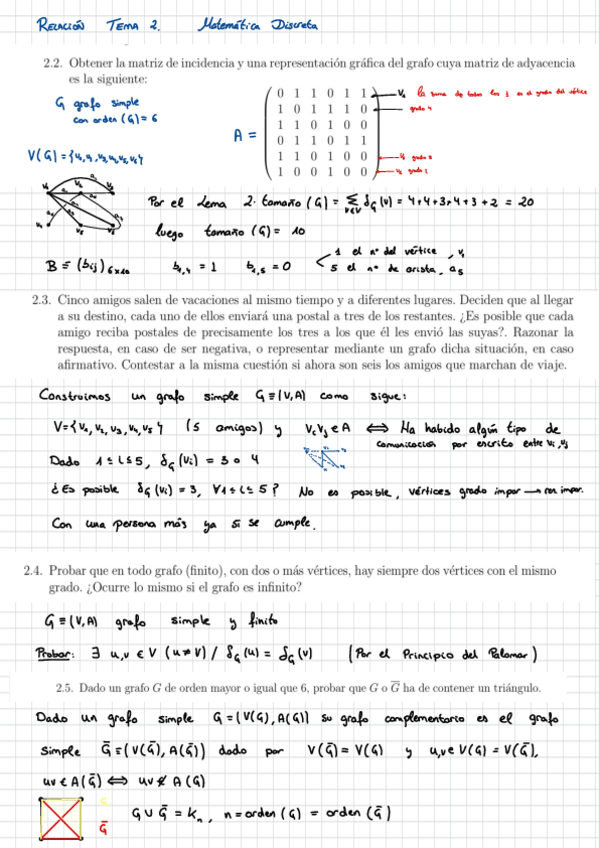 RELACIÓN TEMA 2. Matemática Discreta
2.2. Obtener la matriz de incidencia y una representación gráfica del grafo cuya matriz de adyacencia
es la siguiente:
G grafo simple
con orden (G) = 6
V(G) = {v₁, v₂, v₃, v₄, v₅, v₆}
A =
0 1 1 0 1 1
1 0 1 1 1 0
1 1 0 1 0 0
0 1 1 0 1 1
1 1 0 1 0 0
1 0 0 1 0 0
la suma de todos los 1 es el grado del vértice
grado 4
grado 3
grado 2
Por el Lema 2·tamaño (G) = Σ δG(v) = 4+4+3+4+3+2 = 20
v∈V
luego tamaño (G) = 10
B ≡ (bij) 6x10 b4,4 = 1 b1,5 = 0
1 el nº del vértice, v₁
5 el nº de arista, a₅
2.3. Cinco amigos salen de vacaciones al mismo tiempo y a diferentes lugares. Deciden que al llegar
a su destino, cada uno de ellos enviará una postal a tres de los restantes. ¿Es posible que cada
amigo reciba postales de precisamente los tres a los que él les envió las suyas?. Razonar la
respuesta, en caso de ser negativa, o representar mediante un grafo dicha situación, en caso
afirmativo. Contestar a la misma cuestión si ahora son seis los amigos que marchan de viaje.
Construimos un grafo simple G ≡ (V,A) como sigue:
V = {v₁, v₂, v₃, v₄, v₅} (5 amigos) y vivj ∈ A ⟺ Ha habido algún tipo de
comunicación por escrito entre vi, vj
Dado 1 ≤ i ≤ 5, δG(vi) = 3 o 4
¿Es posible δG(vi) = 3, ∀ 1 ≤ i ≤ 5? No es posible, vértices grado impar → impar.
Con una persona más ya sí se cumple.
2.4. Probar que en todo grafo (finito), con dos o más vértices, hay siempre dos vértices con el mismo
grado. ¿Ocurre lo mismo si el grafo es infinito?
G ≡ (V,A) grafo simple y finito
Probar: ∃ u,v ∈ V (u ≠ v) / δG(u) = δG(v) (Por el Principio del Palomar)
2.5. Dado un grafo G de orden mayor o igual que 6, probar que G o G̅ ha de contener un triángulo.
Dado un grafo simple G = (V(G), A(G)) su grafo complementario es el grafo
simple G̅ = (V(G̅), A(G̅)) dado por V(G̅) = V(G) y u,v ∈ V(G) = V(G̅),
uv ∈ A(G̅) ⟺ uv ∉ A(G)
G
G̅
G ∪ G̅ = Kn, n = orden (G) = orden (G̅)